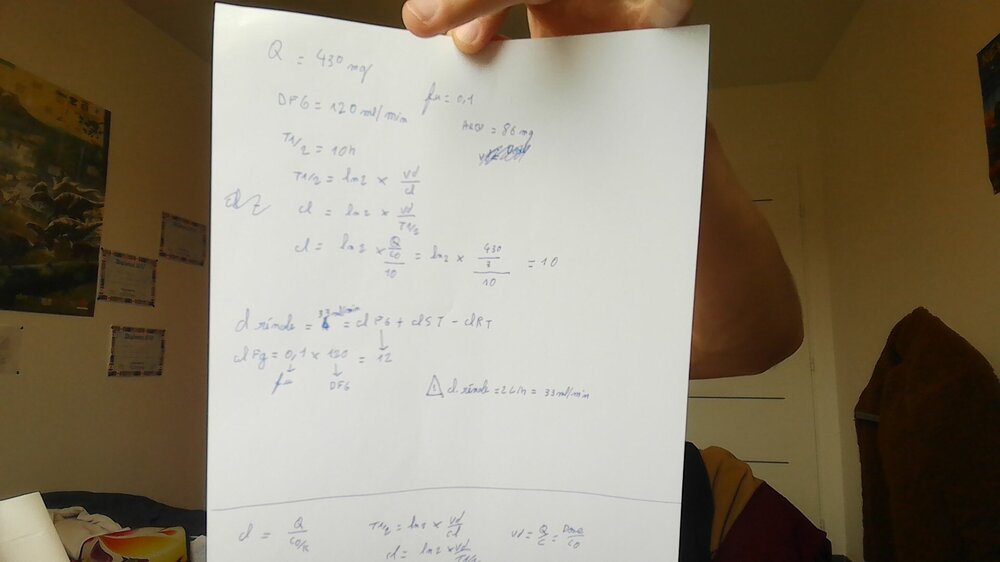 Q = 430 mg
DFG = 120 ml/min
fu = 0,1
T1/2 = 10h
= 86 mg
T1/2 = ln2 × Vd/Cl
Cl = ln2 × Vd/T1/2
Cl = ln2 × Q/C0/10 = ln2 × 430/10 = 10
33 ml/min
Cl rénale = = Cl FG + Cl ST - Cl RT
Cl Fg = 0,1 × 120 = 12
fu DFG
⚠ Cl. rénale = 2 L/h = 33 ml/min
Cl = Q/C0/K
T1/2 = ln2 × Vd/Cl
Vd = Q/C = Dose/C0
Cl = ln2 × Vd/T1/2